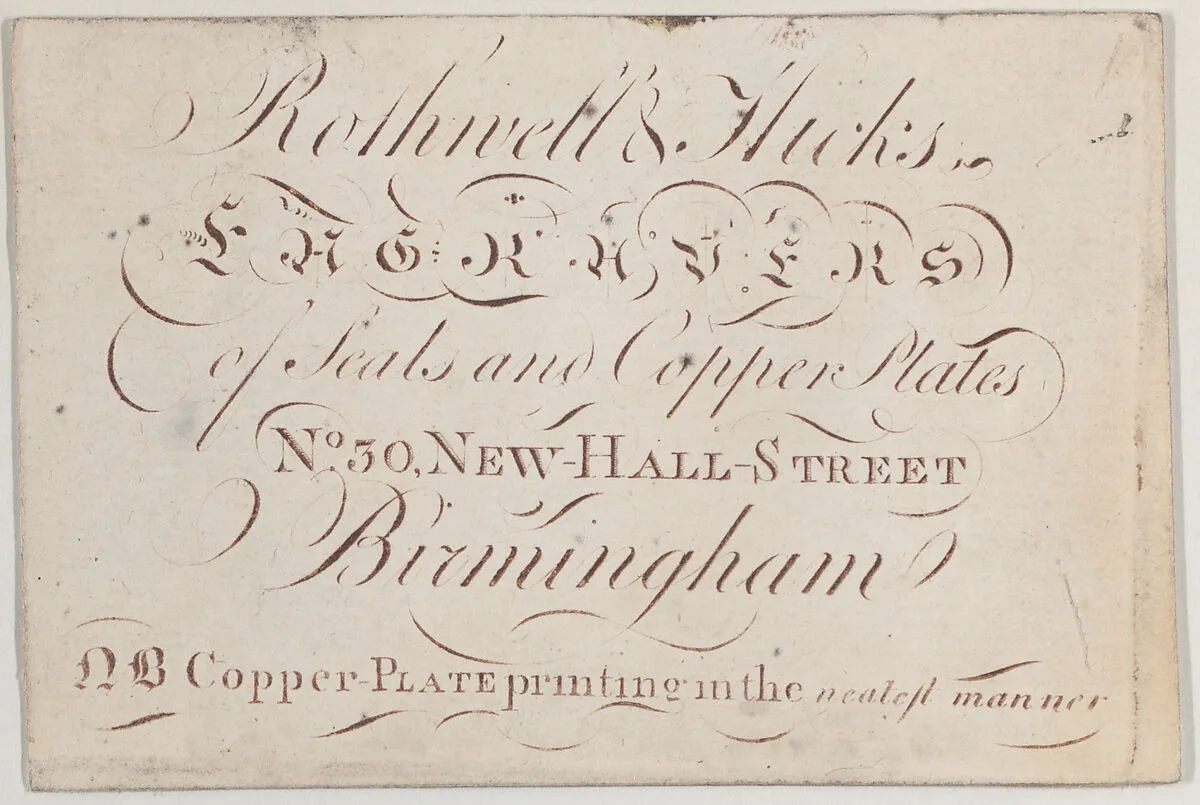 Rothwell & Hicks
ENGRAVERS
of Seals and Copper Plates
No. 30, NEW-HALL-STREET
Birmingham
NB Copper-PLATE printing in the neatest manner